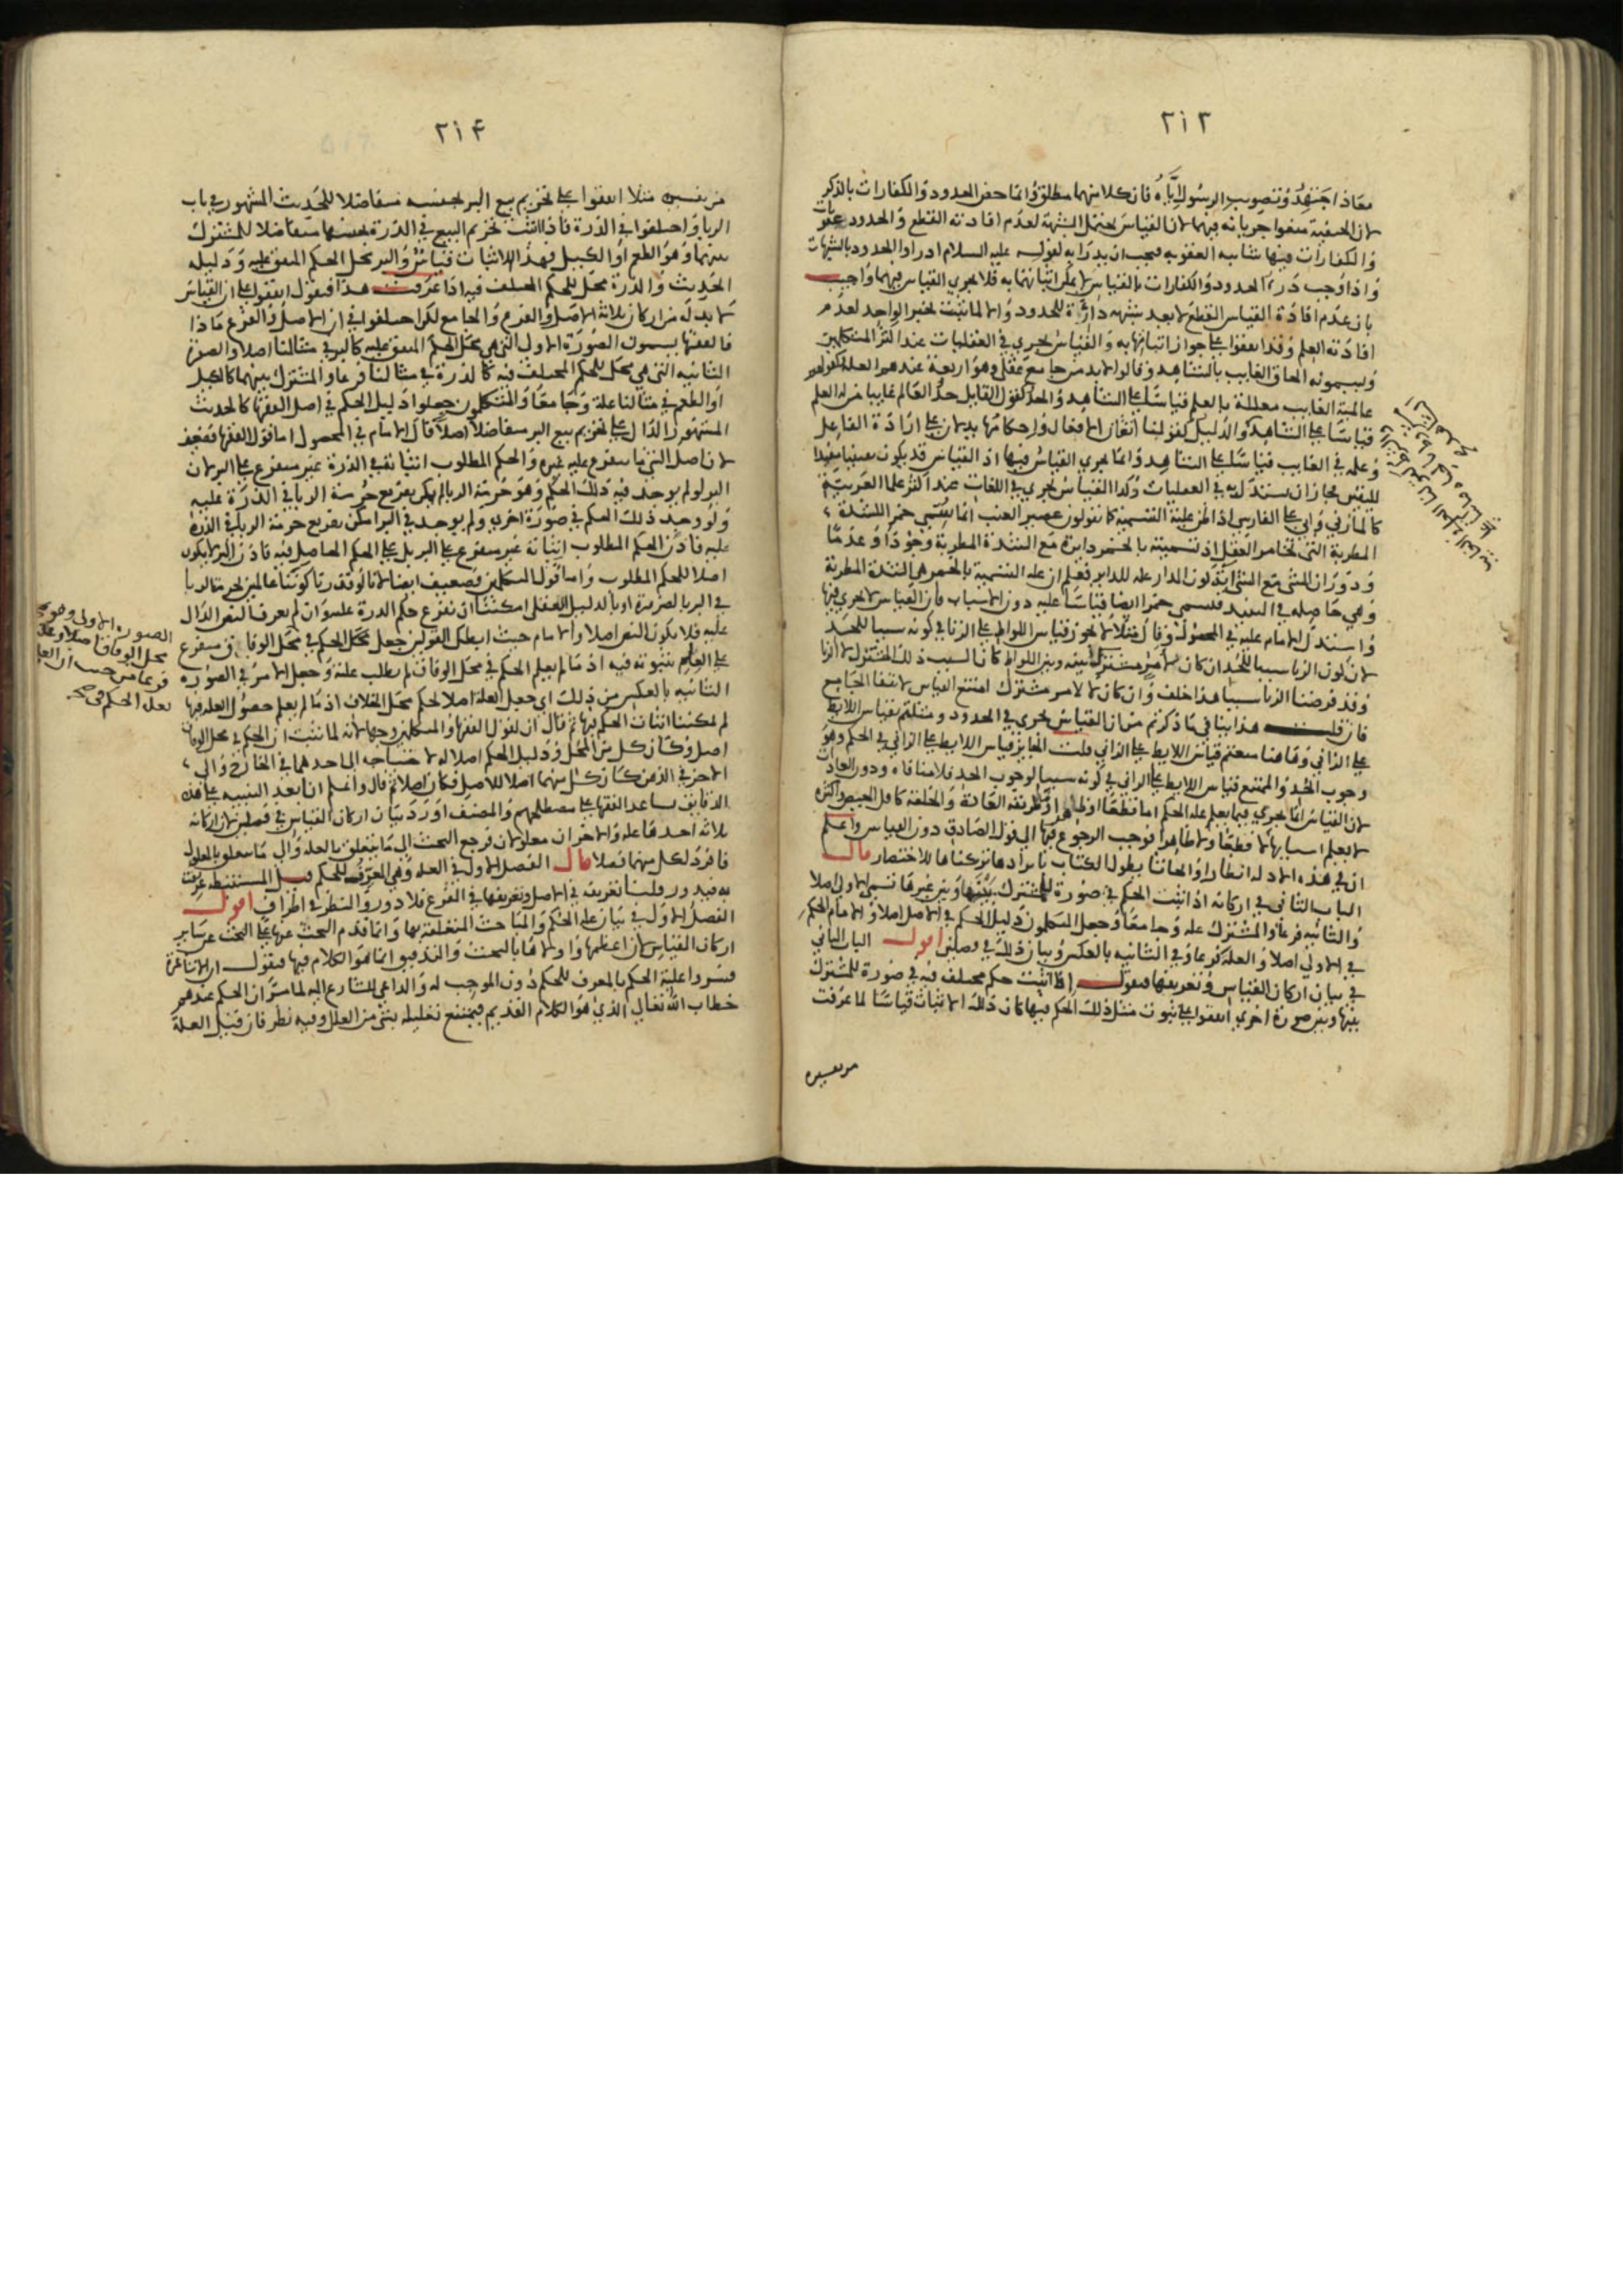 ٢١٣
معاذا اجتهد وتصويب الرسول اياه فان كلا منهما مطلق وانما خص الحدود والكفارات بالذكر
لان الحنفية منعوا جريانه فيهما لان القياس يحتمل الشبهة لعدم افادته القطع والحدود عقوبات
والكفارات فيها شائبة العقوبة فيجب ان يدرا به لقوله عليه السلام ادراوا الحدود بالشبهات
واذا وجب درء الحدود والكفارات بالقياس لا يمكن اثباتهما به فلا يجري القياس فيهما واجيب
بان عدم افادة القياس القطع لا يعد شبهه دارئة للحدود والا لما ثبتت بخبر الواحد لعدم
افادته العلم وقد اتفقوا على جواز اثباتها به والقياس يجري في العقليات عند اكثر المتكلمين
ويسمونه الحاق الغايب بالشاهد وقالوا لابد من جامع عقلي وهو اربعة عندهم العلة كقولهم
عالمية الغايب معللة بالعلم قياسا على الشاهد والحد كقول القايل حد العالم غايبا من له العلم
قياسا على الشاهد والدليل كقولنا اتقان الافعال واحكامها يدلان على ارادة الفاعل
وعلمه في الغايب قياسا على الشاهد وانما يجري القياس فيها اذ القياس قد يكون يقينيا مفيدا
لليقين فجاز ان يستدل به في العقليات وكذا القياس يجري في اللغات عند اكثر علما العربية
كالمازني وابي علي الفارسي اذا ظن علية التسمية كما نقولون عصير العنب انما يسمى خمر اللشدة
المطربة التي تخامر العقل اذ تسميته بالخمر دايرة مع الشدة المطربة وجودا وعدما
ودوران الشي مع الشي اية كون المدار علة للداير فعلم ان علة التسمية بالخمر هي الشدة المطربة
وهي حاصلة في النبيذ فيسمى خمرا ايضا قياسا عليه دون الاسباب فان القياس لا يجري فيها
واستدل الامام عليه في المحصول وقال مثلا لا يجوز قياس اللواط على الزنا في كونه سببا للحد
لان كون الزنا سببا للحد ان كان لامر مشترك بينه وبين اللواط كان السبب ذلك المشترك لا الزنا
وقد فرضنا الزنا سببا هذا خلف وان كان لا لامر مشترك امتنع القياس لانتفا الجامع
فان قلت هذا ينافي ما ذكرتم من ان القياس يجري في الحدود ومثلتم بقياس اللايط
على الزاني وهاهنا منعتم قياس اللايط على الزاني قلت الجايز قياس اللايط على الزاني في الحكم وهو
وجوب الحد والممتنع قياس اللايط على الزاني في كونه سببا لوجوب الحد فلا منافاة ودون العادات
لان القياس انما يجري فيما يعلم علة الحكم اما قطعا او ظاهرا وطريقة العادة والخلقة كاقل الحيض واكثره
لا يعلم اسبابها لا قطعا ولا ظاهرا فوجب الرجوع فيها الى قول الصادق دون القياس واعلم
ان في هذه الادلة انظارا وابحاثا يطول الكتاب بايرادها تركناها للاختصار قال
الباب الثاني في اركانه اذا ثبت الحكم في صورة لمشترك بينها وبين غيرها تسمى الاولى اصلا
والثانية فرعا والمشترك علة وجامعا وجعل المتكلمون دليل الحكم في الاصل اصلا والامام الحكم
في الاولى اصلا والعلة فرعا وفي الثانيه بالعكس وبيان ذلك في فصلين اقول الباب الثاني
في بيان اركان القياس وتعريفها فنقول اذا اثبت حكم مختلف فيه في صورة للمشترك
بينها وبين صورة اخرى اتفقوا على ثبوت مثل ذلك الحكم فيها كان ذلك الاثبات قياسا لما عرفت
من تفسيره
٢١٤
من تفسيره مثلا اتفقوا على تحريم بيع البر بجنسه متفاضلا للحديث المشهور في باب
الربا واختلفوا في الذرة فاذا اثبت تحريم البيع في الذرة بجنسها متفاضلا للمشترك
بينهما وهو الطعم او الكيل فهذا الاثبات قياس والبر محل الحكم المتفق عليه ودليله
الحديث والذرة محل للحكم المختلف فيه اذا عرفت هذا فنقول اتفقوا على ان القياس
لا بد له من اركان ثلاثة الاصل والفرع والجامع لكن اختلفوا في ان الاصل والفرع ماذا
فالفقها يسمون الصورة الاولى التي هي محل الحكم المتفق عليه كالبر في مثالنا اصلا والصورة
الثانيه التي هي محل للحكم المختلف فيه كالذرة في مثالنا فرعا والمشترك بينهما كالكيل
او الطعم في مثالنا علة وجامعا والمتكلمون جعلوا دليل الحكم في اصل الفقها كالحديث
المشهور الدال على تحريم بيع البر متفاضلا اصلا قال الامام في المحصول اما قول الفقها فضعيف
لان اصل الشي ما يتفرع عليه غيره والحكم المطلوب اثباته في الذرة غير متفرع على البر لان
البر لو لم يوجد فيه ذلك الحكم وهو حرمة الربا لم يمكن تفريع حرمة الربا في الذرة عليه
ولو وجد ذلك الحكم في صورة اخرى ولم يوجد في البر امكن تفريع حرمة الربا في الذرة
عليه فاذن الحكم المطلوب اثباته غير متفرع على البر بل على الحكم الحاصل فيه فاذن البر لا يكون
اصلا للحكم المطلوب واما قول المتكلمين فضعيف ايضا لانا لو قدرنا كوننا عالمين بحرمة الربا
في البر بالضرورة او بالدليل العقلي امكننا ان نفرع حكم الذرة عليه وان لم يعرف النص الدال
عليه فلا يكون النص اصلا والامام حيث ابطل القولين جعل محل الحكم في محل الوفاق متفرع
على العلم بثبوته فيه اذ ما لم يعلم الحكم في محل الوفاق لم يطلب علته وجعل الامر في الصورة
الثانيه بالعكس من ذلك اي جعل العلة اصلا لحكم محل الخلاف اذ ما لم يعلم حصول العلة فيها
لم يمكننا اثبات الحكم فيها ثم قال ان لقول الفقها والمتكلمين وجها لانه لما ثبت ان الحكم في محل الوفاق
اصل وكان كل من المحل ودليل الحكم اصلا له لاحتياجه الى احدهما في الخارج والى
الاخر في الذهن كان كل منهما اصلا للاصل فكان اصلا ثم قال واعلم انا بعد التنبيه على هذه
الدقايق نساعد الفقها على مصطلحهم والمصنف اورد بيان اركان القياس في فصلين لان اركانه
ثلاثة احدها علة والاخران معلولان فرجع البحث الى ما يتعلق بالعلة والى ما يتعلق بالمعلول
فافرد لكل منهما فصلا قال الفصل الاول في العلة وهي المعرف للحكم قيل المستنبطة عرفت
به فيدور قلنا تعريفه في الاصل وتعريفها في الفرع فلا دور والنظر في اطراف اقول
الفصل الاول في بيان علة الحكم والمباحث المتعلقة بها وانما قدم البحث عنها على البحث عن ساير
اركان القياس لان اعظمها واولاها بالبحث والتدقيق انما هو الكلام فيها فنقول ان الاشاعرة
فسروا علية الحكم بالمعرف للحكم دون الموجب له والداعي للشارع اليه لما مر ان الحكم عندهم
خطاب الله تعالى الذي هو الكلام القديم فيمتنع تعليله بشي من العلل وفيه نظر فان قيل العلة
الصورة الاولى وهو
محل الوفاق اصلا والعلة
فرعا من حيث ان العلم
بعلة الحكم في